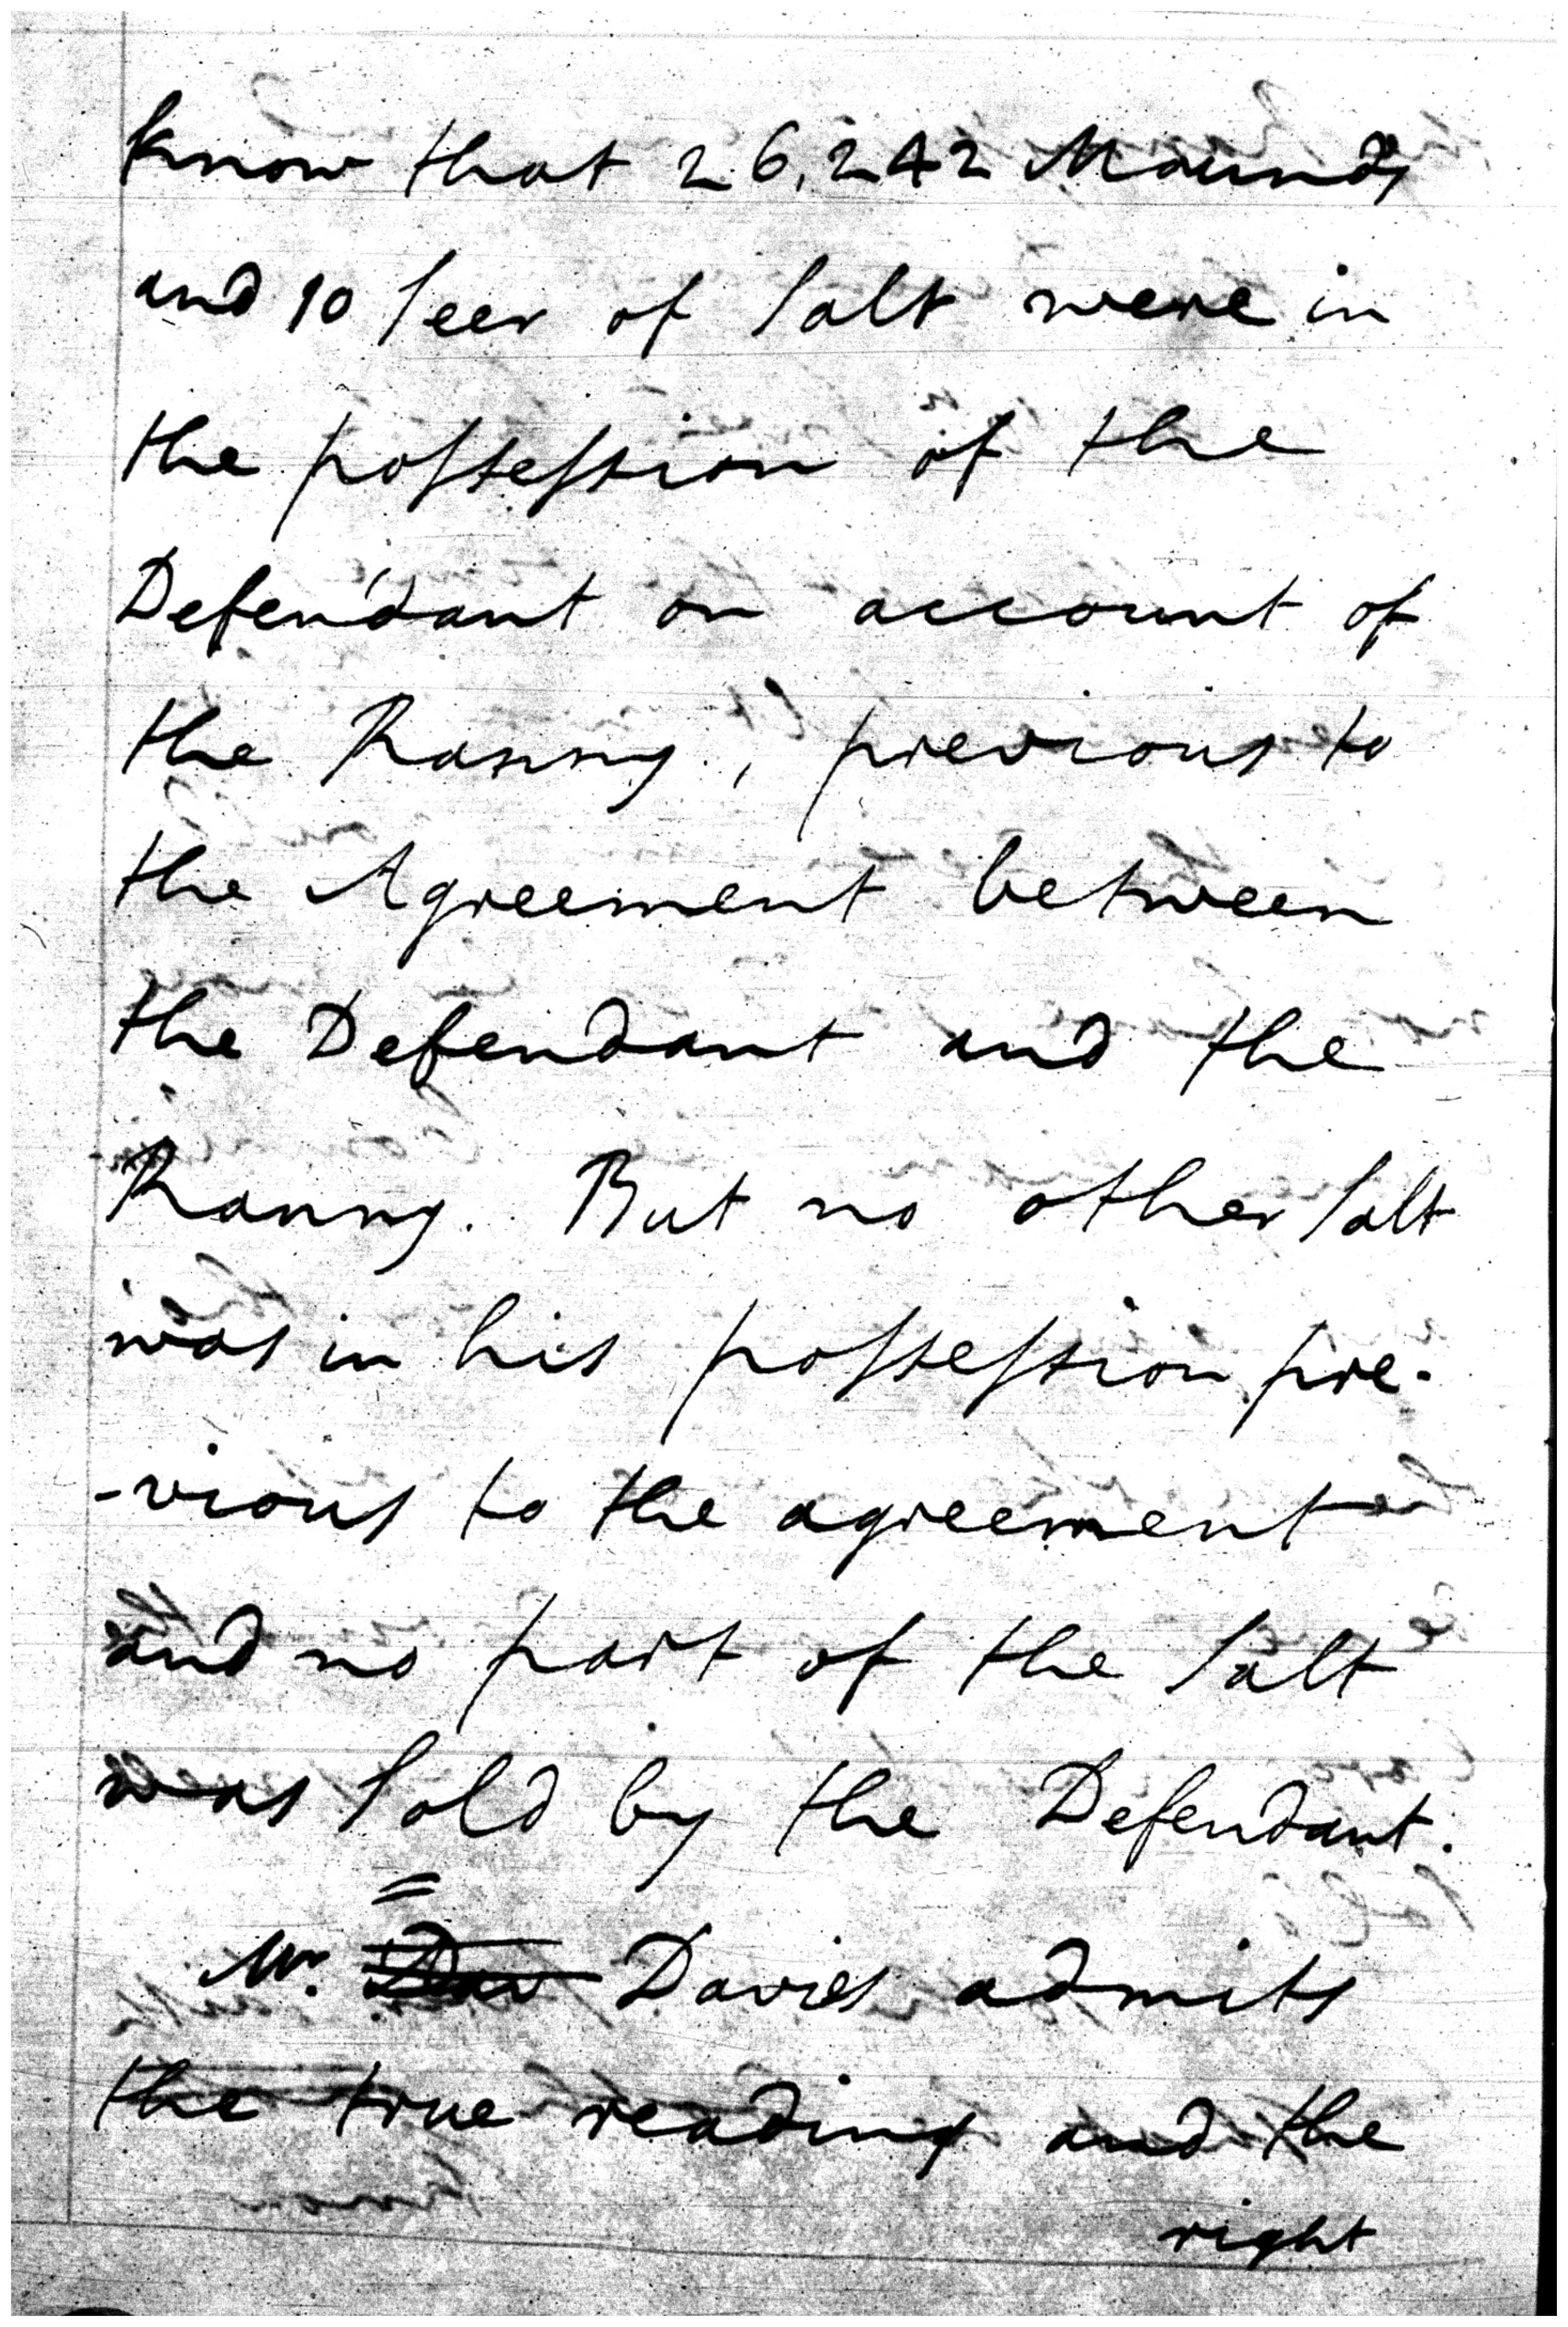 know that 26,242 Maunds
and 10 Seer of Salt were in
the possession of the
Defendant on account of
the Ranny, previous to
the Agreement between
the Defendant and the
Ranny. But no other Salt
was in his possession pre-
-vious to the agreement
and no part of the Salt
was Sold by the Defendant.
Mr. Dav Davies admits
the true reading and the
right